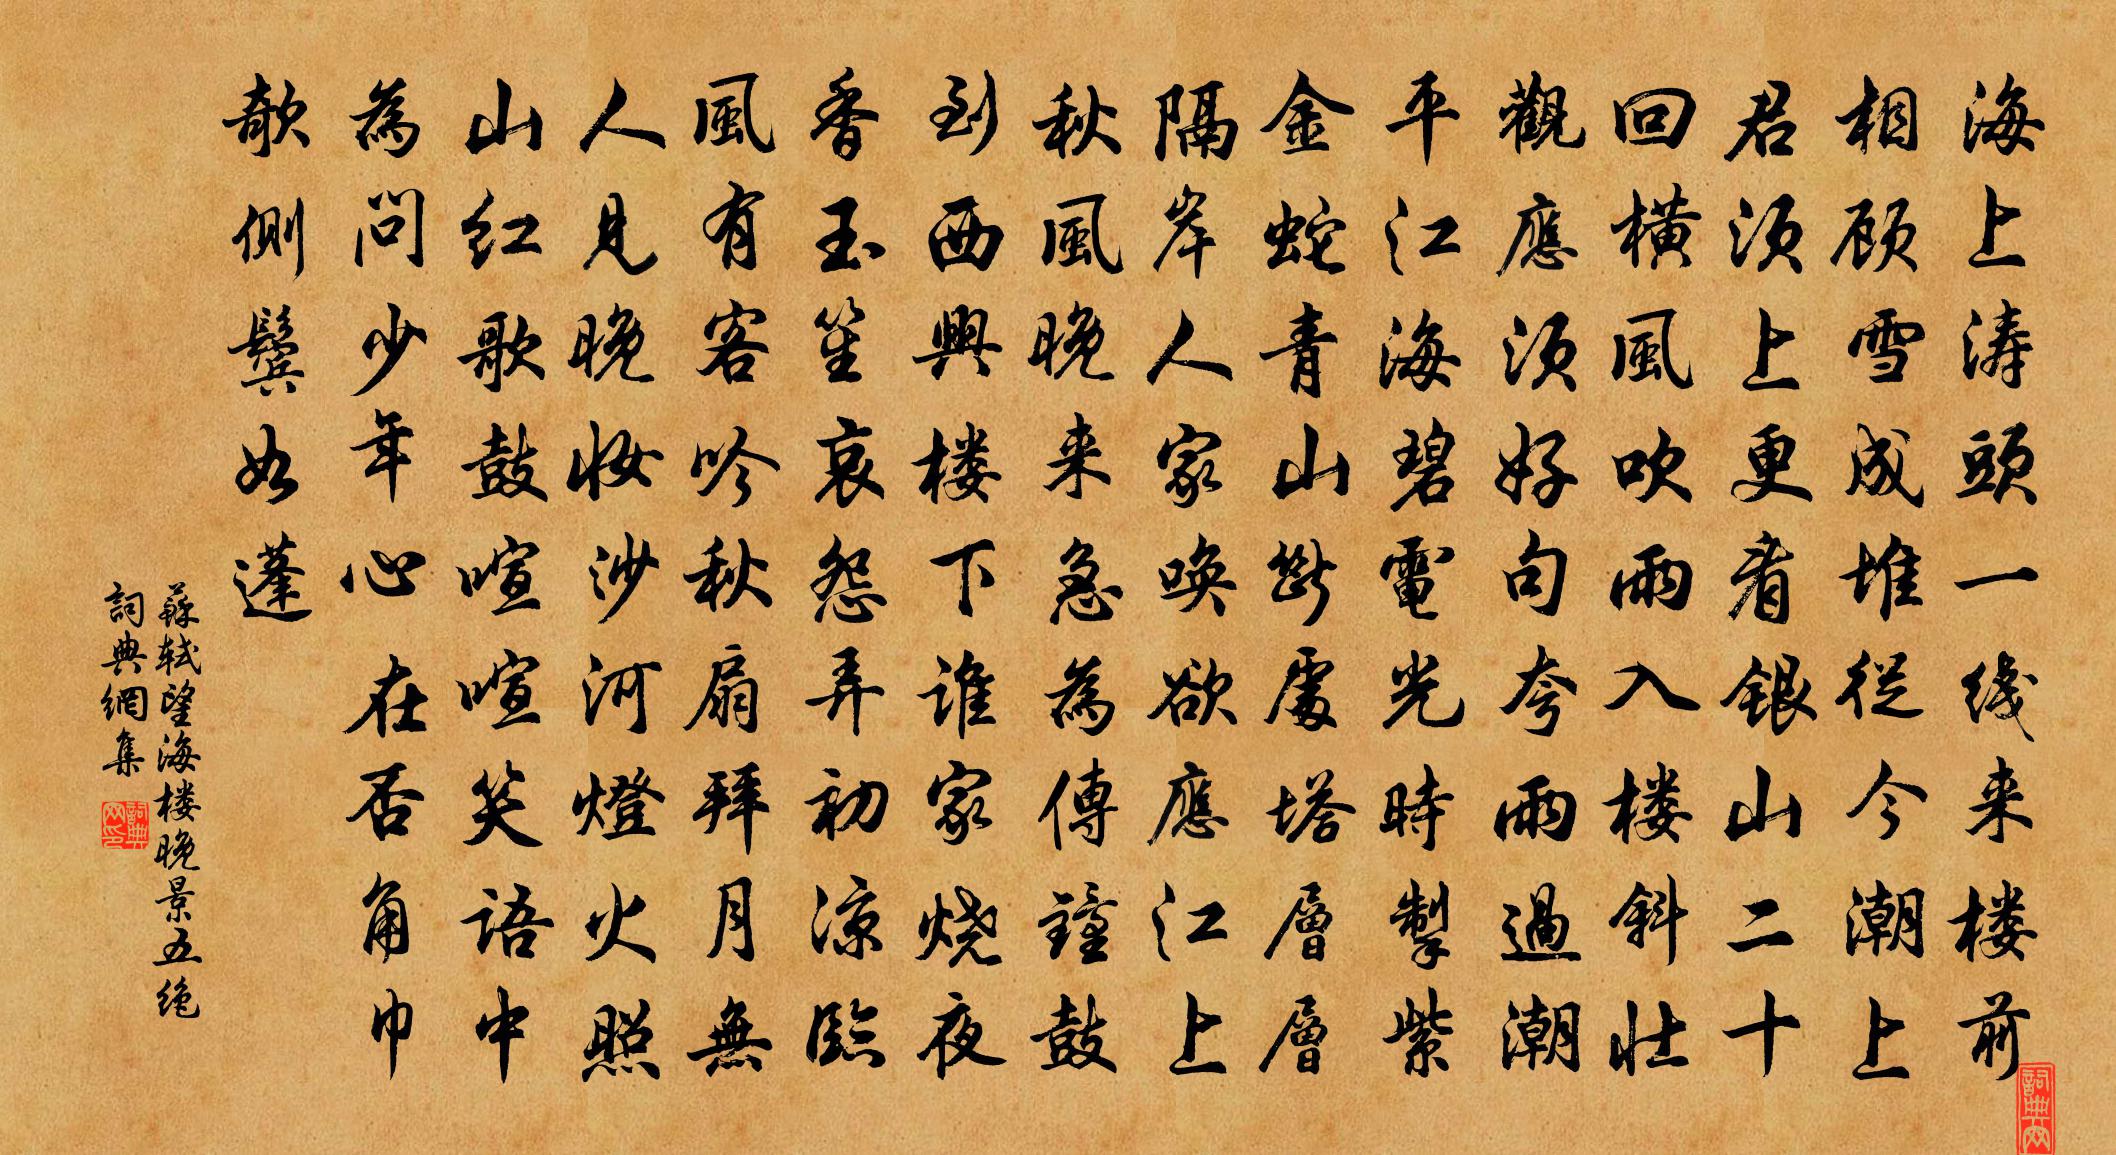 海上涛頭一线来楼前
相顾雪成堆從今潮上
君须上更看銀山二十
回横風吹雨入楼斜壮
觀應须好句夸雨過潮
平江海碧電光時掣紫
金蛇青山斷處塔層層
隔岸人家唤欲應江上
秋風晚来急為傳鐘鼓
到西興楼下谁家烧夜
香玉笙哀怨弄初涼臨
風有客吟秋扇拜月無
人見晚妆沙河燈火照
山红歌鼓喧喧笑语中
為問少年心在否角巾
欹側鬢如蓬
蘇轼望海楼晚景五绝
詞典網集
詞典网印
詞典网